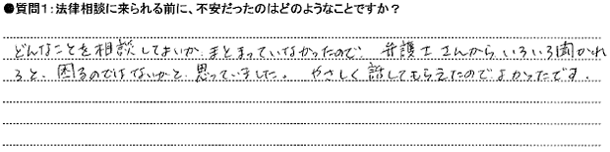 ●質問1：法律相談に来られる前に、不安だったのはどのようなことですか？
どんなことを相談してよいか まとまっていなかったので、弁護士さんから いろいろ聞かれ
ると、困るのではないかと 思っていました。 やさしく 話してもらえたのでよかったです。